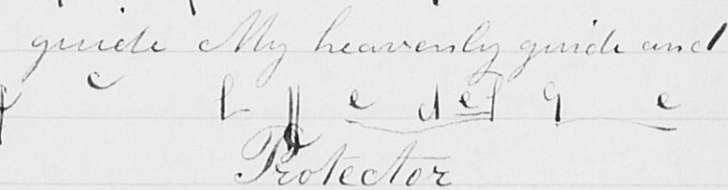 guide My heavenly guide and
Protector